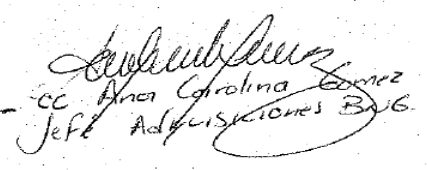 - cc Ana Carolina Gomez
Jefe Adquisiciones